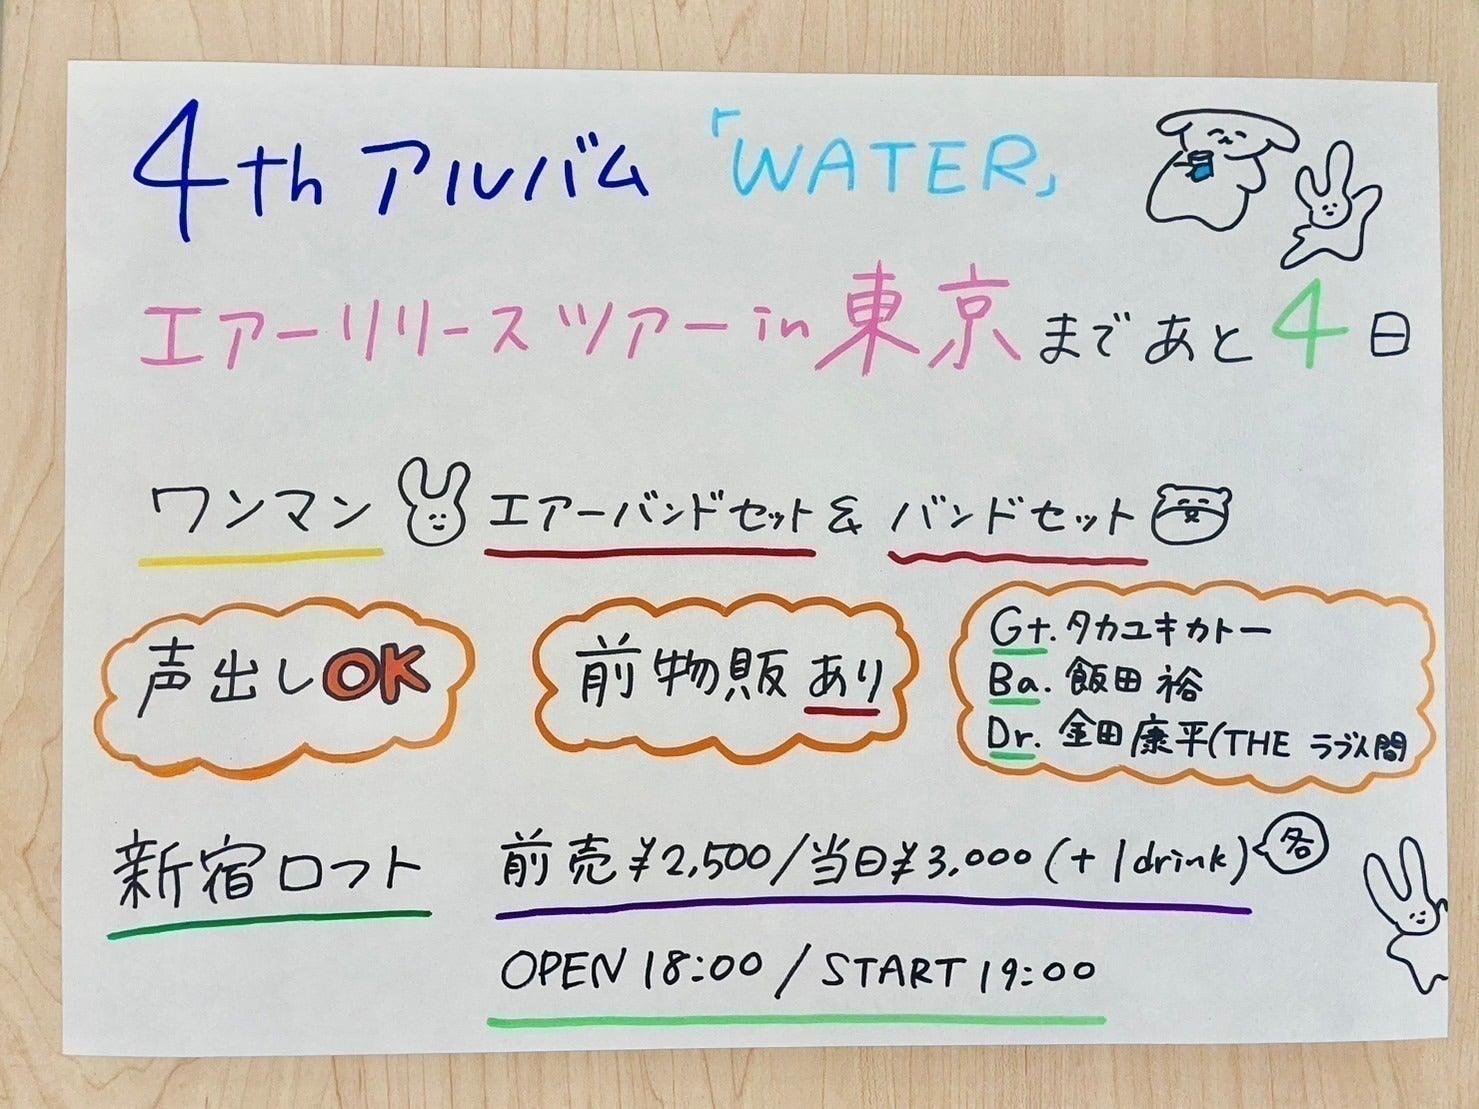 4th アルバム「WATER」
エアーリリースツアー in 東京まであと4日
ワンマン エアーバンドセット & バンドセット
声出しOK
前物販あり
Gt. タカユキカトー
Ba. 飯田裕
Dr. 金田康平(THE ラブ人間
新宿ロフト
前売¥2,500/当日¥3,000(+1drink)
各
OPEN 18:00 / START 19:00